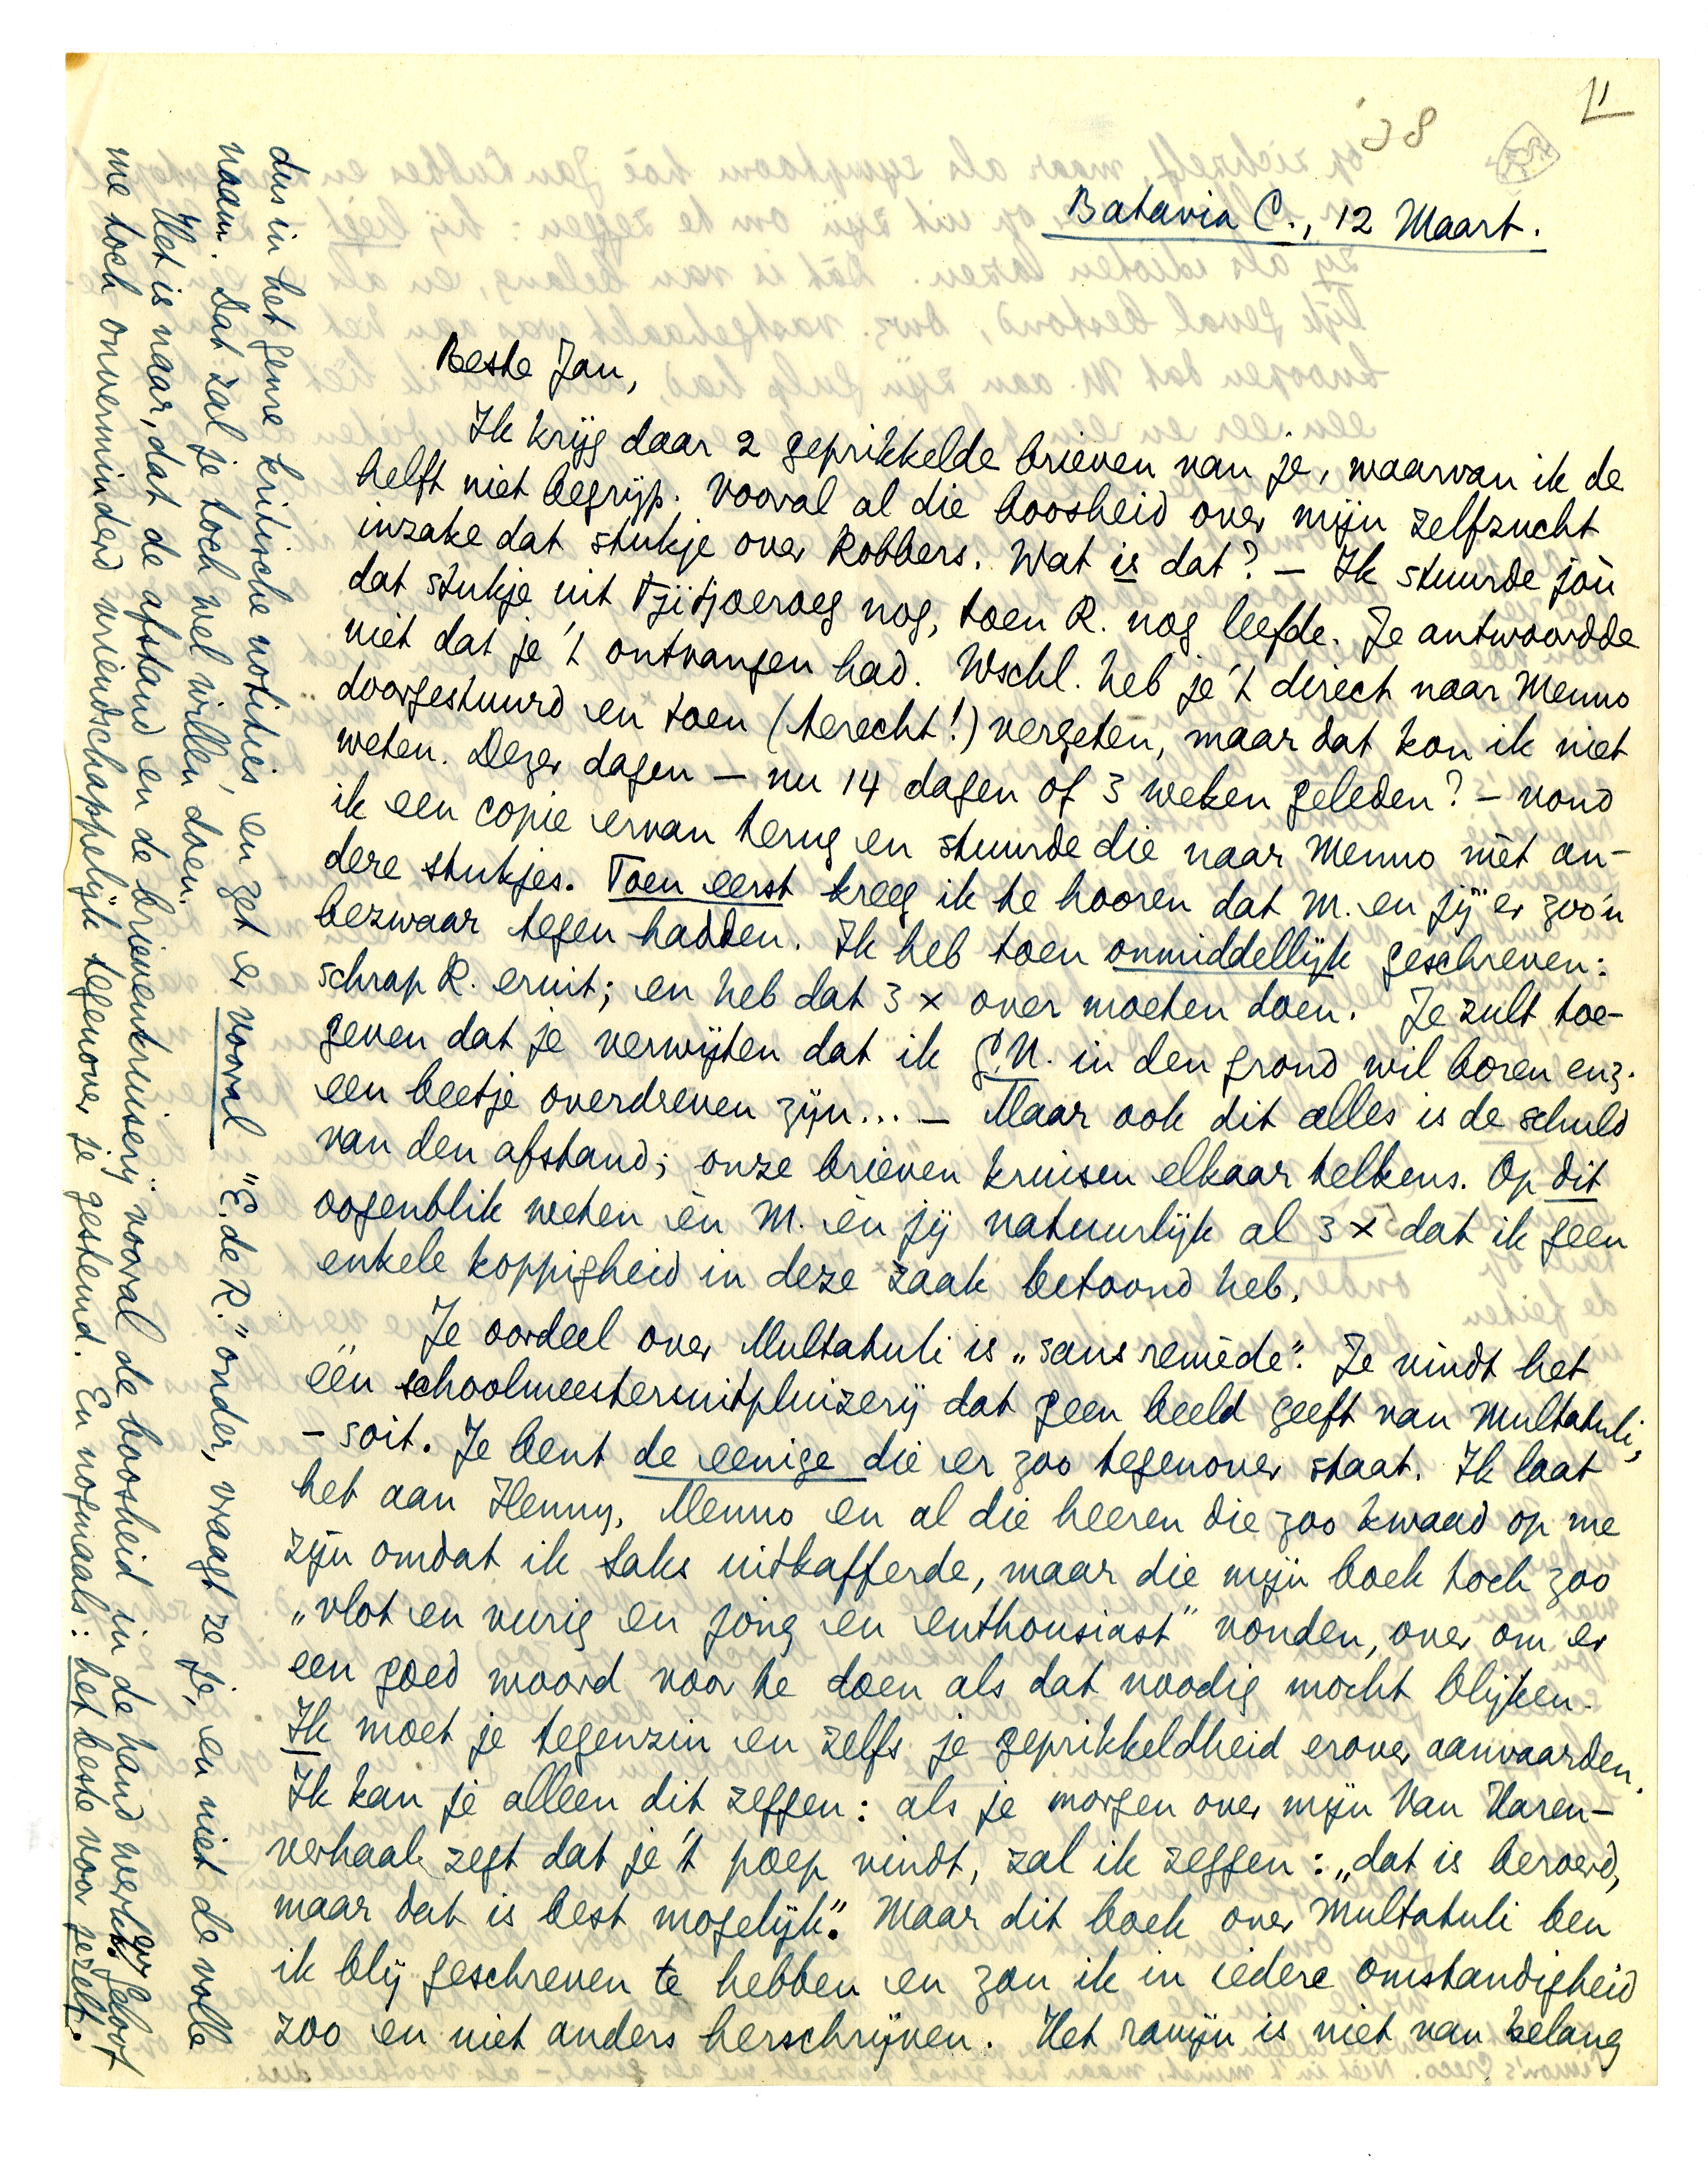 '38
Batavia C., 12 Maart.
Beste Jan,
Ik krijg daar 2 geprikkelde brieven van je, waarvan ik de
helft niet begrijp. Vooral al die boosheid over mijn zelfzucht
inzake dat stukje over Robbers. Wat is dat? — Ik stuurde jòu
dat stukje uit Tjitjoeroeg nog, toen R. nog leefde. Je antwoordde
niet dat je 't ontvangen had. Wschl. heb je 't direct naar Menno
doorgestuurd en toen (terecht!) vergeten, maar dat kon ik niet
weten. Dezer dagen — nu 14 dagen of 3 weken geleden? — vond
ik een copie ervan terug en stuurde die naar Menno mèt an-
dere stukjes. Toen eerst kreeg ik te hooren dat M. en jij er zoo'n
bezwaar tegen hadden. Ik heb toen onmiddellijk geschreven:
schrap R. eruit; en heb dat 3 x over moeten doen. Je zult toe-
geven dat je verwijten dat ik G.N. in den grond wil boren enz.
een beetje overdreven zijn... — Maar ook dit alles is de schuld
van den afstand; onze brieven kruisen elkaar telkens. Op dit
oogenblik weten èn M. èn jij natuurlijk al 3 x dat ik geen
enkele koppigheid in deze zaak betoond heb.
Je oordeel over Multatuli is „sans remède". Je vindt het
één schoolmeestersuitpluizerij dat geen beeld geeft van Multatuli,
- soit. Je bent de eenige die er zoo tegenover staat. Ik laat
het aan Henny, Menno en al die heeren die zoo kwaad op me
zijn omdat ik Saks uitkafferde, maar die mijn boek toch zoo
„vlot en vurig en jong en enthousiast" vonden, over om er
een goed woord voor te doen als dat noodig mocht blijken.
Ik moet je tegenzin en zelfs je geprikkeldheid erover aanvaarden.
Ik kan je alleen dit zeggen: als je morgen over mijn Van Haren-
verhaal zegt dat je 't poep vindt, zal ik zeggen: „dat is beroerd,
maar dat is best mogelijk." Maar dit boek over Multatuli ben
ik blij geschreven te hebben en zou ik in iedere omstandigheid
zoo en niet anders herschrijven. Het ravijn is niet van belang
dus in het genre kritische notities, en zet er vooral "E. de R." onder, vraagt ze je, en niet de volle
naam. Dat zal je toch wel willen doen.
Het is naar, dat de afstand en de brievenkruiserij vooral de boosheid in de hand werkt. Geloof
me toch onverminderd vriendschappelijk tegenover je gestemd. En nogmaals: het beste voor jezelf.